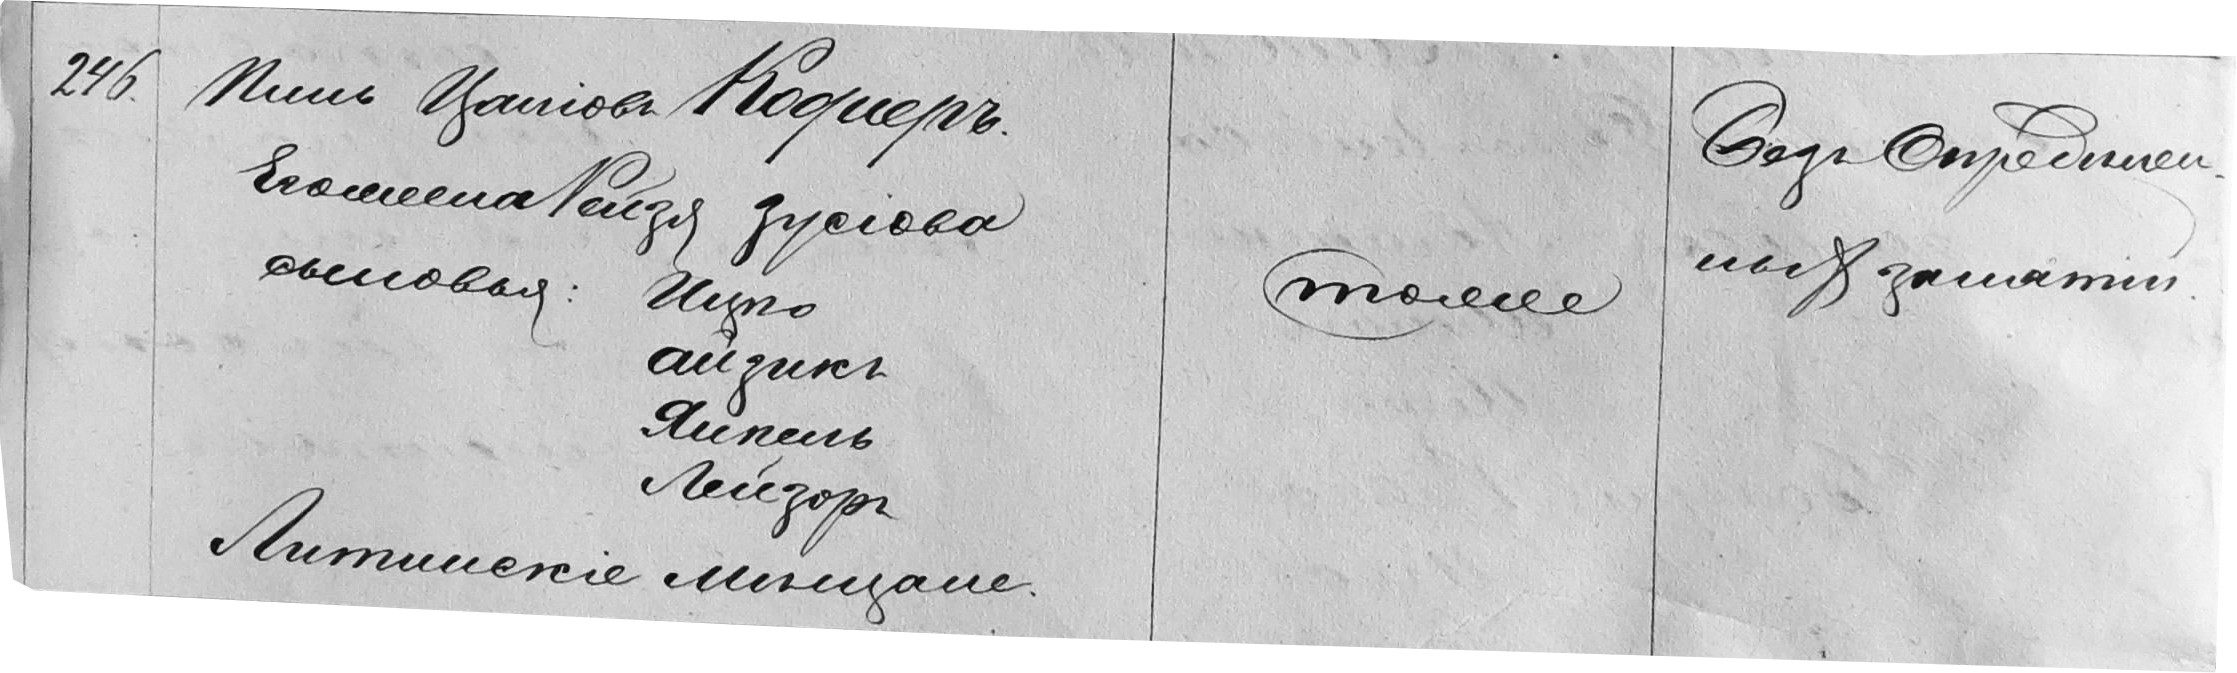 246. Пинь Цапіовъ Кофнеръ.
Его жена Рейзя Зусіова
сыновья: Ицко
айзикъ
Янкель
Лейзоръ
Литинскіе мѣщане.
тоже
Безъ Опредѣлен-
ныхъ занятій.